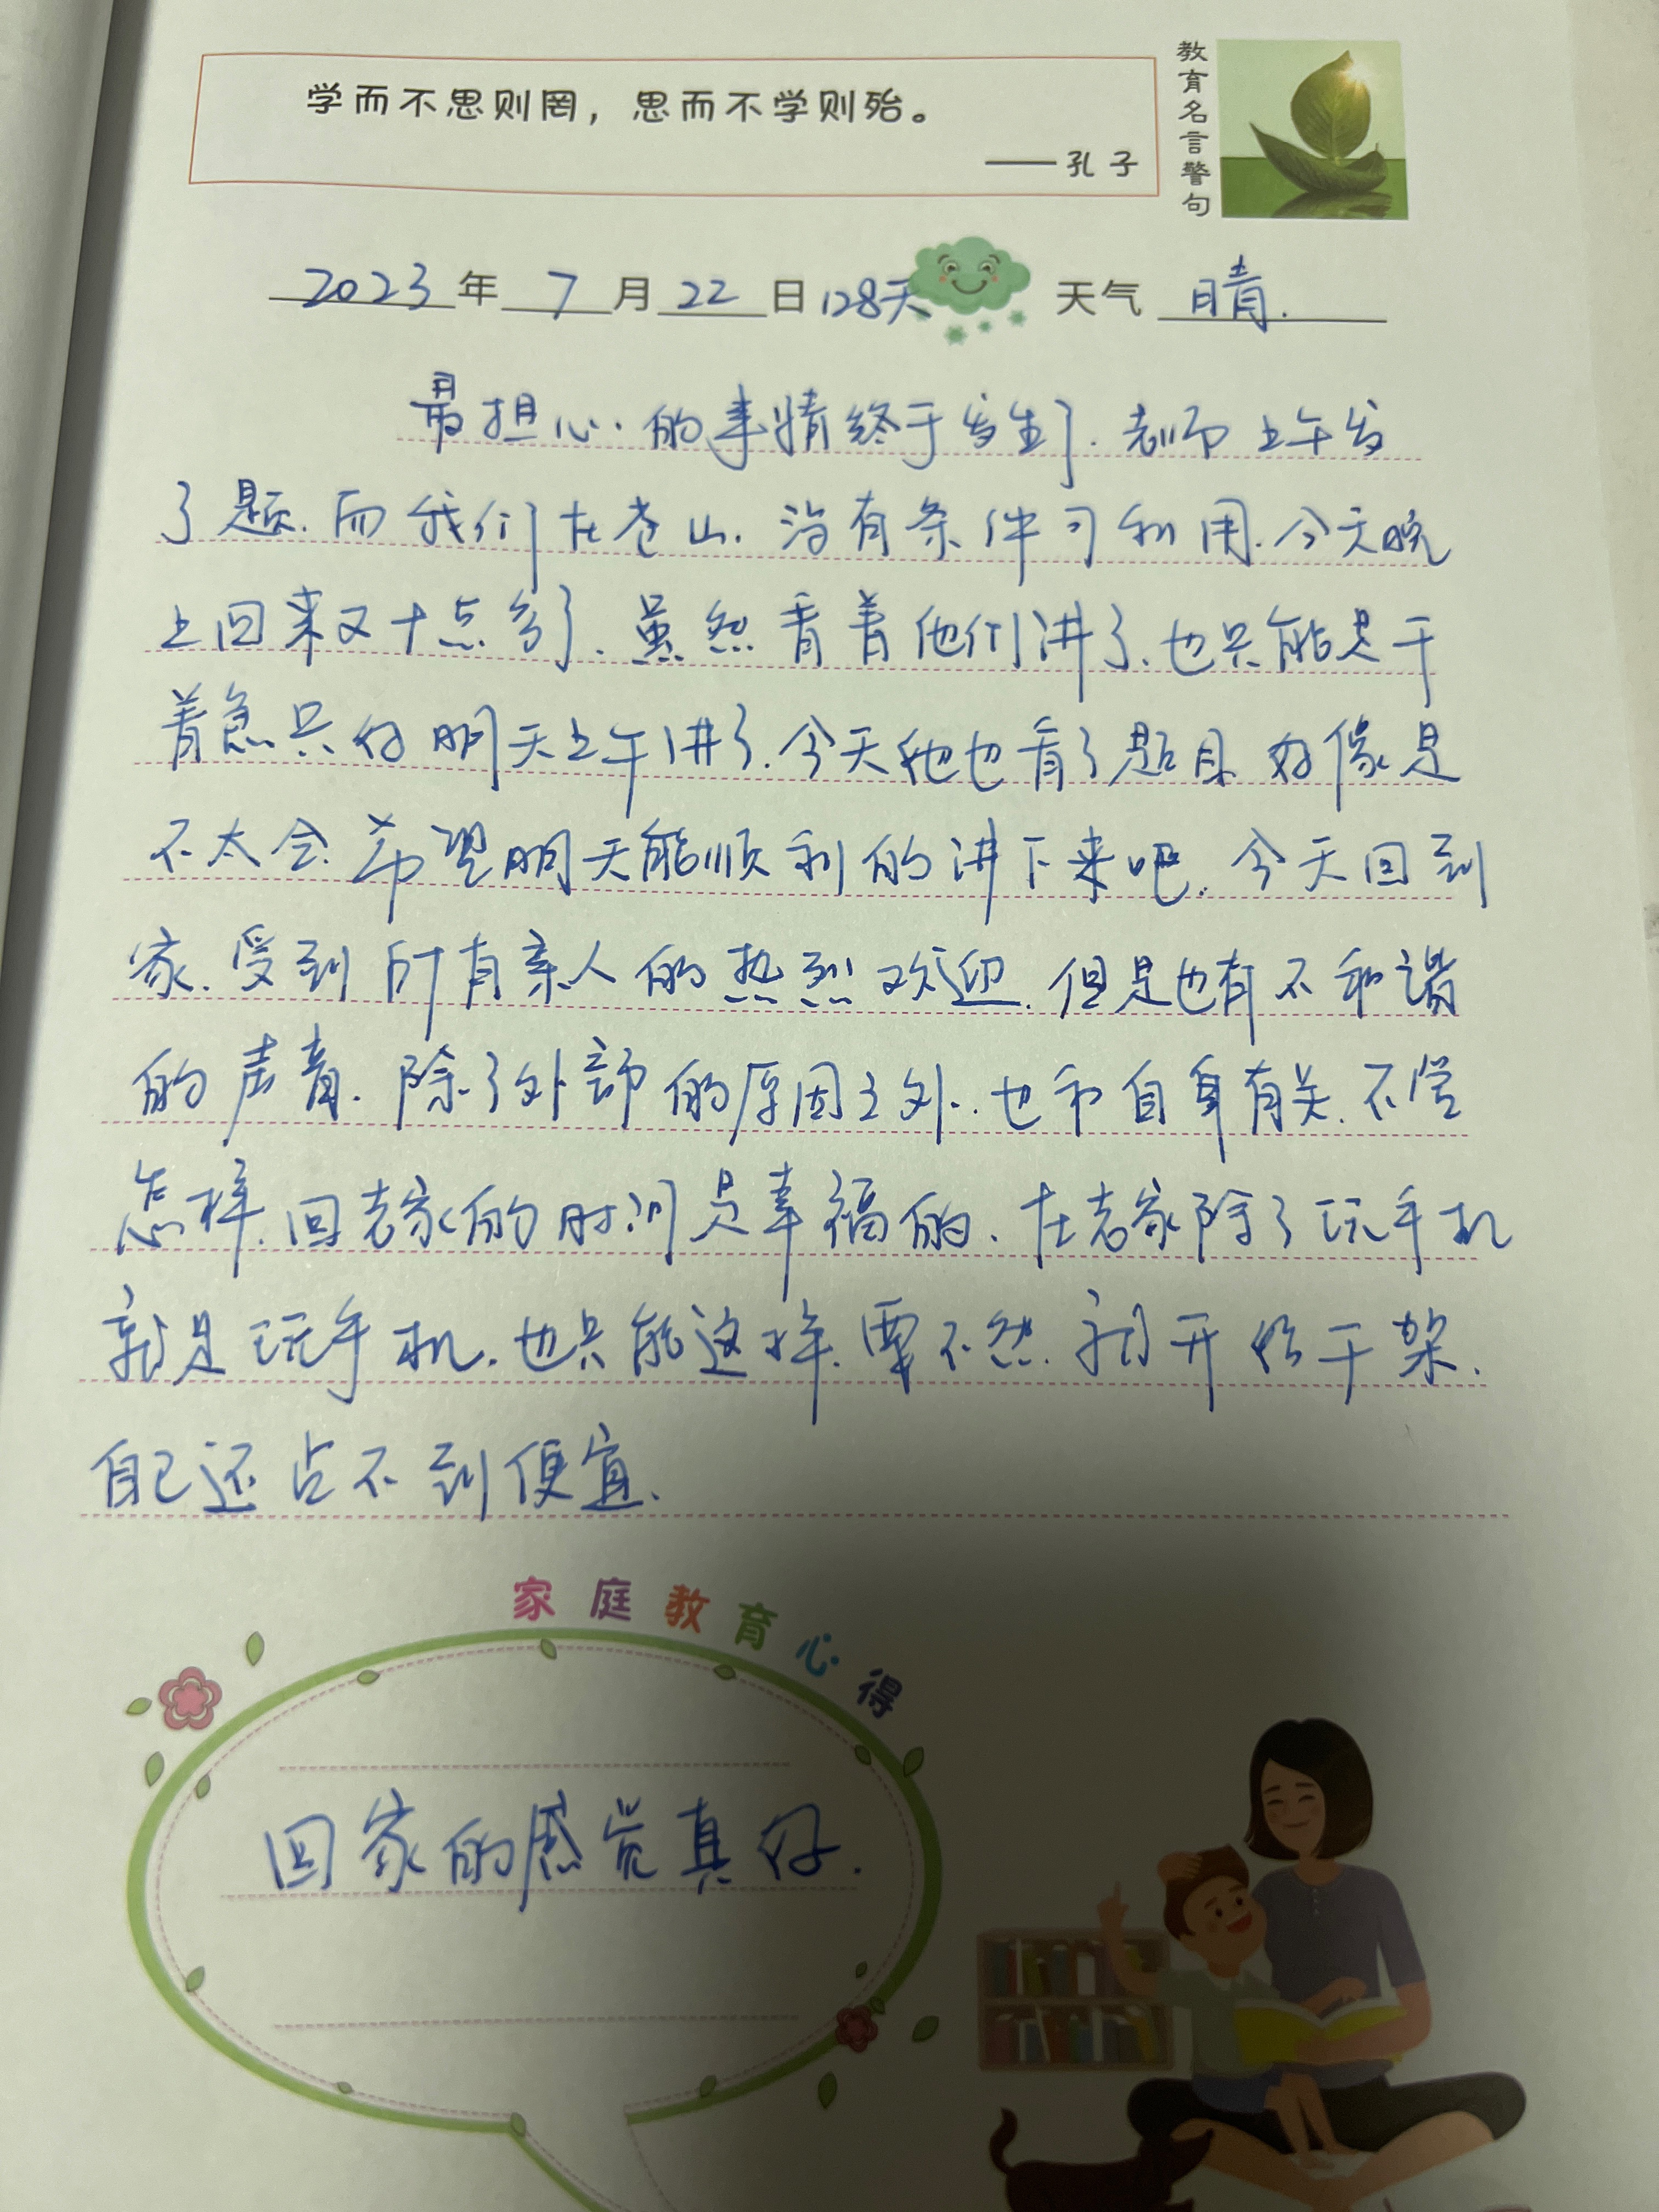 学而不思则罔，思而不学则殆。
——孔子
教育名言警句
2023年7月22日128天 天气 晴.
最担心的事情终于发生了.老师上午发
了题.而我们在苍山.没有条件可利用.今天晚
上回来又十点多了.虽然看着他们讲了.也只能是干
着急只好明天上午讲了.今天他也看了题目好像是
不太会.希望明天能顺利的讲下来吧.今天回到
家.受到所有亲人的热烈欢迎.但是也有不和谐
的声音.除了外部的原因之外.也和自身有关.不管
怎样.回老家的时间是幸福的.在老家除了玩手机
就是玩手机.也只能这样.要不然.开始干架.
自己还占不到便宜.
家庭教育心得
回家的感觉真好.